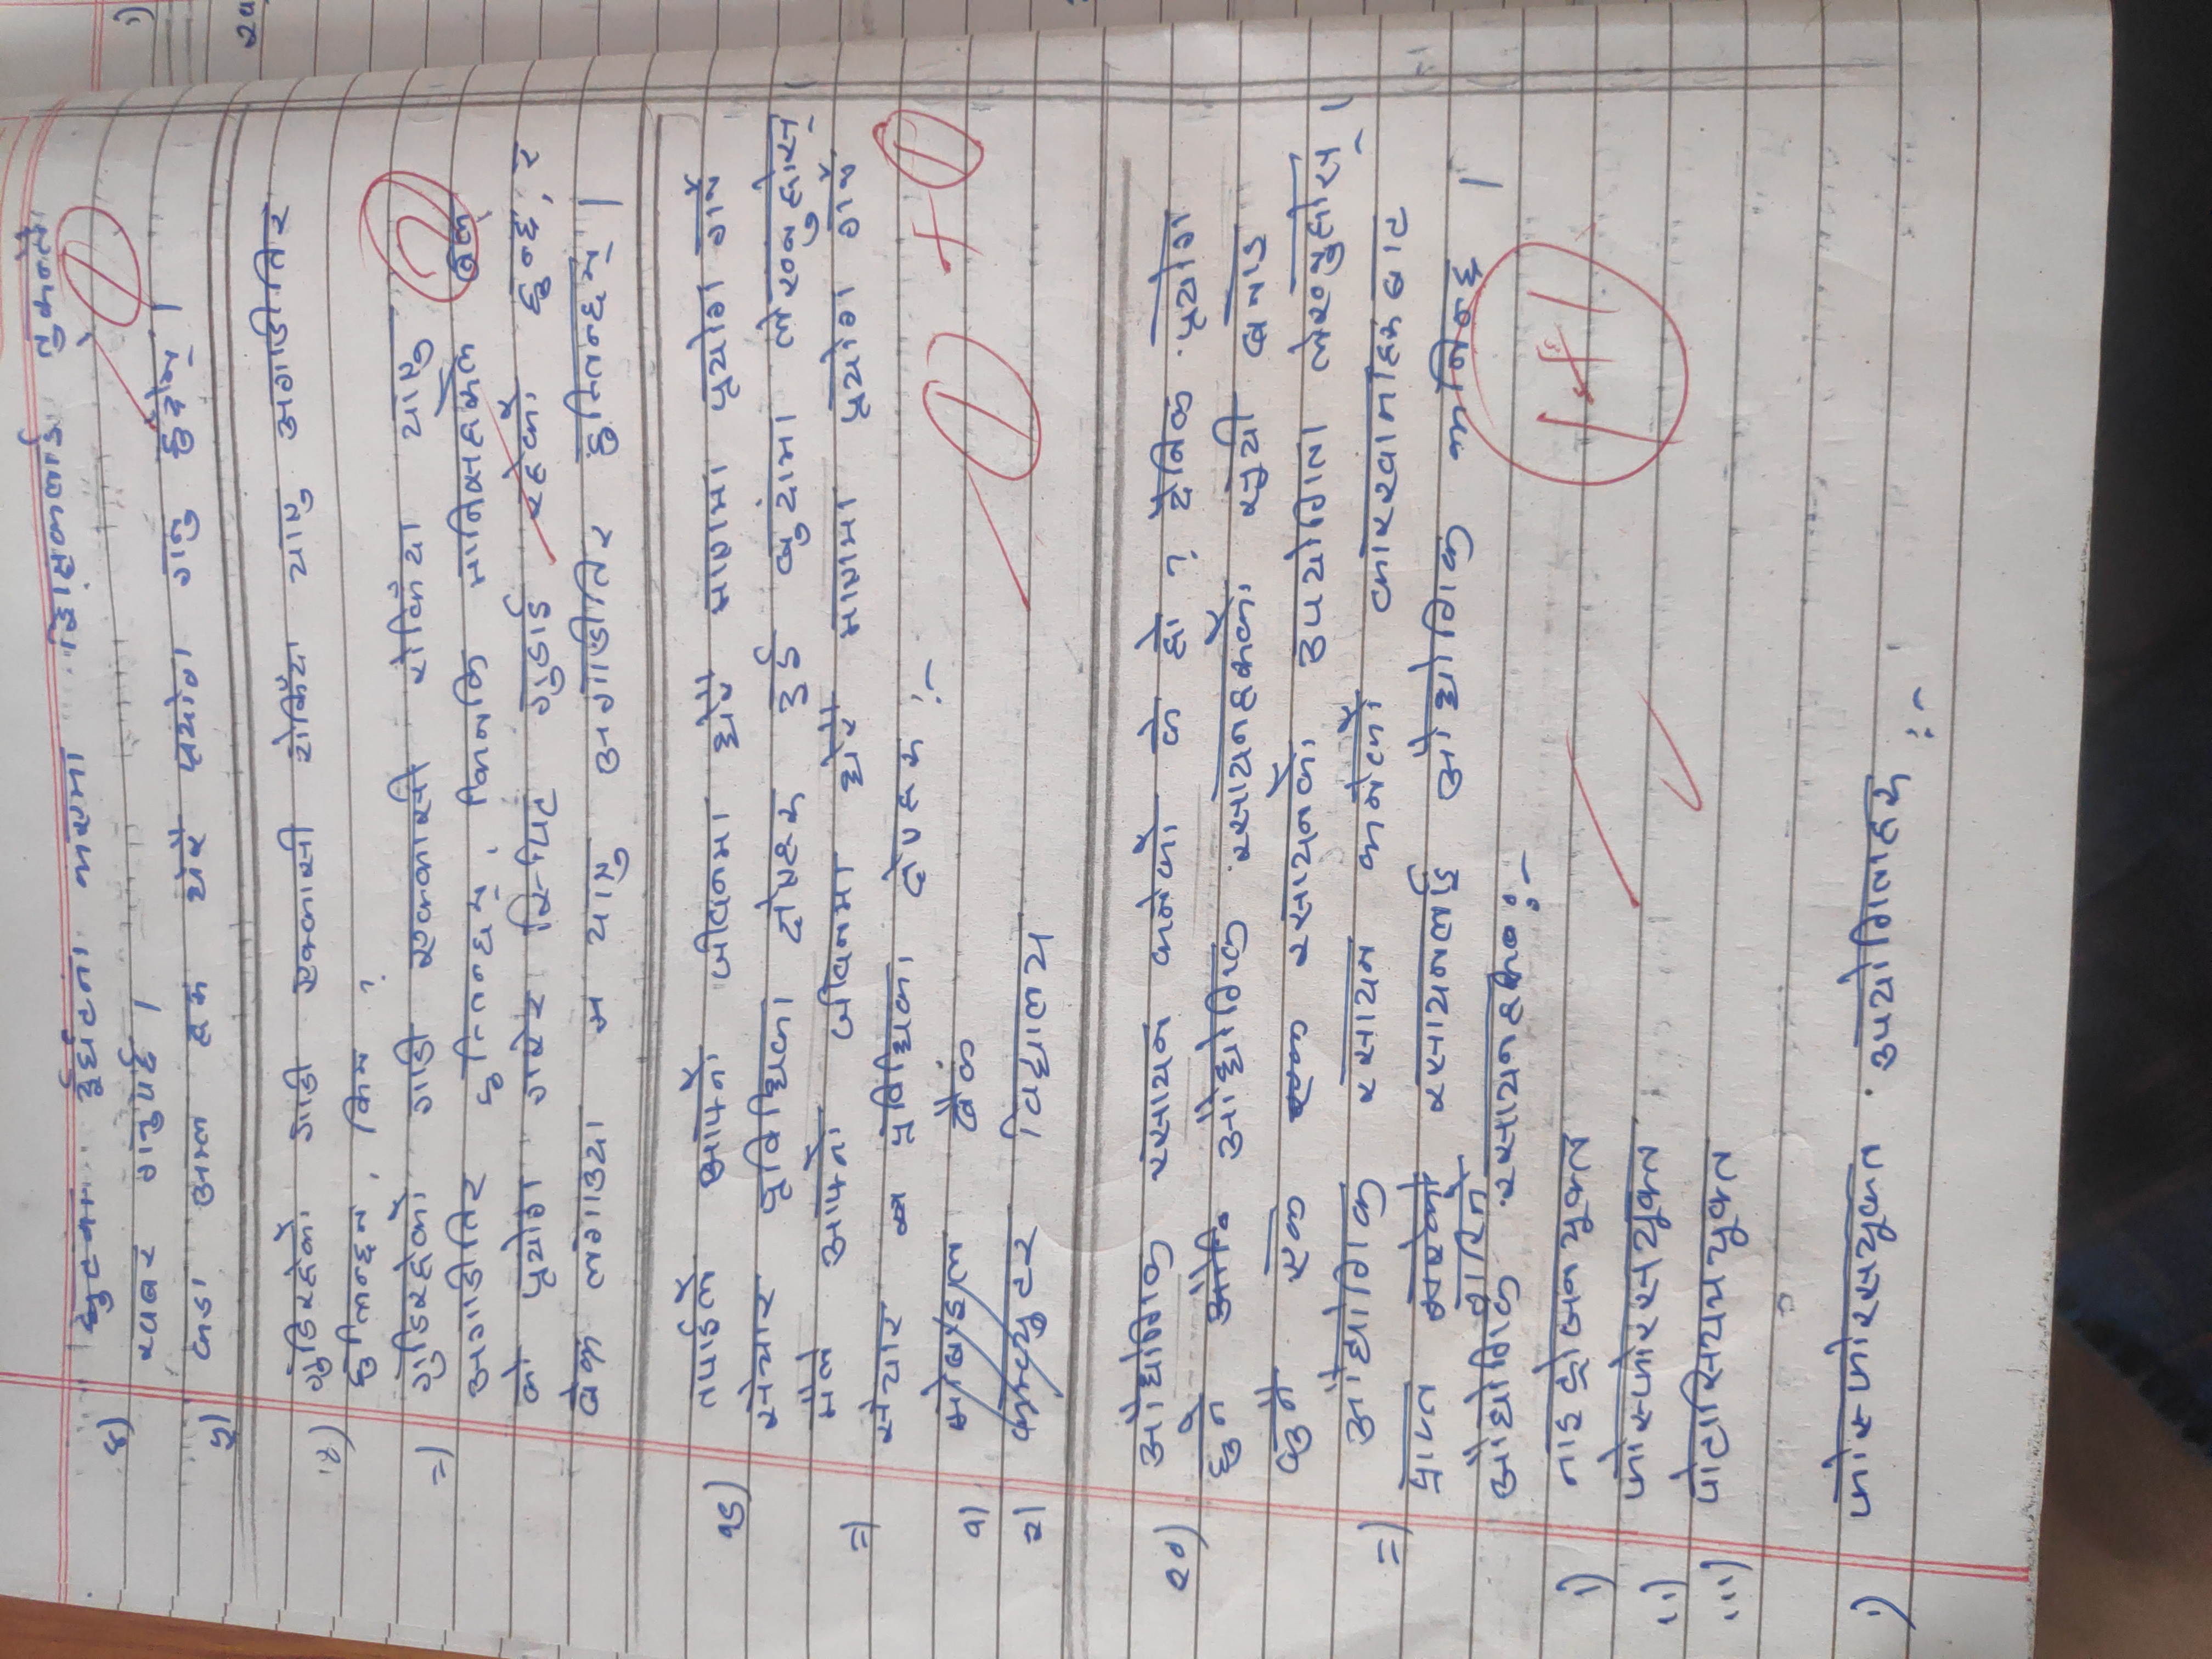 ४) दुर्घटना भएमा शिक्षकलाई तुरुन्तै
खबर गर्नुपर्छ ।
५) कडा अम्ल हरु धेरै प्रयोग गर्नु हुदैन् ।
१
गुडिरहेको गाडी एक्कासी रोकिँदा यात्रु अगाडीतिर
हुत्तिन्छन, किन ?
=) गुडिरहेको गाडी एक्कासी रोकिँदा यात्रु
अगाडीतिर हुत्तिन्छन्, किनकि मानिसहरुले बल
को प्रयोग गरेर स्पिट गुडाई रहेको हुन्छ, र
ब्रेक लगाउदा यात्रु अगाडीतिर हुत्तिन्छन् ।
2
१८) तपाईले आफ्नो जीवनमा धेरै मात्रामा प्रयोग गर्ने
संचार प्रविधिका क्षेत्रहरु दुई बुदामा लेख्नुहोस् ।
=) मैले आफ्नो जीवनमा धेरै मात्रामा प्रयोग गर्ने
संचार प्रविधिका क्षेत्रहरु :-
१) मोबाइल बैंक
२) कम्प्युटर विद्यालय
1 + 1
२०) औद्योगिक रसायन भनेको के हो ? दैनिक प्रयोग
हुने औद्योगिक रसायनहरुको सूची बनाइ
कुनै एक रसायनको उपयोगिता लेख्नुहोस् ।
=) औद्योगिक रसायन भनेको कारखानाहरु बाट
प्राप्त गरिने रसायनलाई औद्योगिक भनिन्छ ।
औद्योगिक रसायनहरु :-
i) नाइट्रोजनयूक्त
ii) फोस्फोरसयूक्त
iii) पोटासियमयूक्त
1+1
i) फोस्फोरसयूक्त उपयोगिताहरु :-
i)